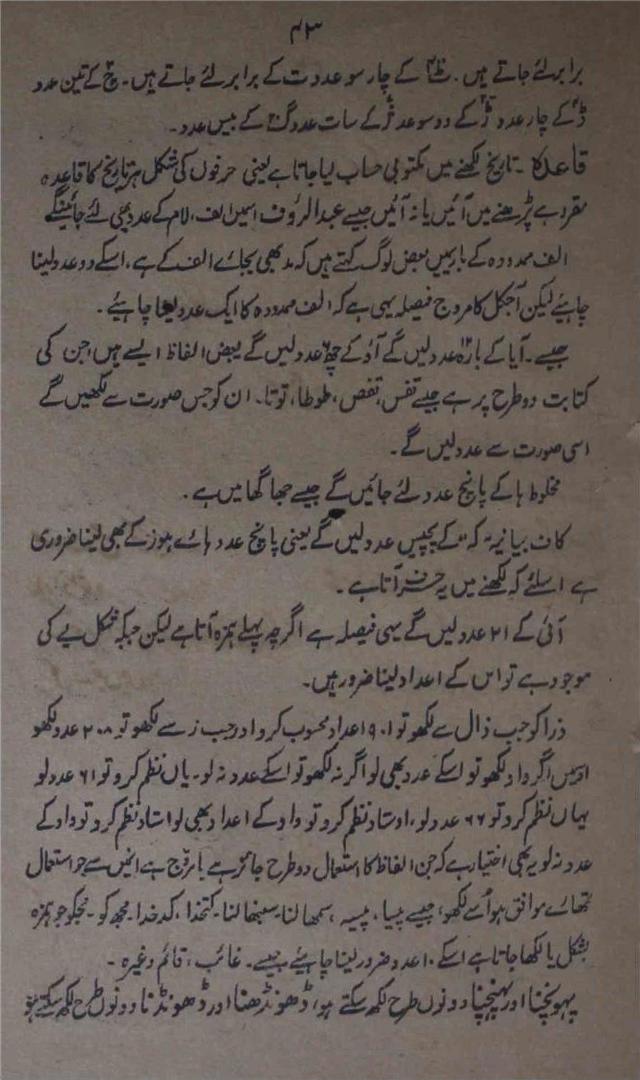 ۴۳
برابر لئے جاتے ہیں۔ ٹ کے چار سو عدد ت کے برابر لئے جاتے ہیں۔ چ کے تین عدد
ڈ کے چار عدد ڑ کے دو سو عدد ژ کے سات عدد گ کے بیس عدد۔
قاعدہ۔ تاریخ لکھنے میں مکتوبی حساب لیا جاتا ہے یعنی حرفوں کی شکل ہر تاریخ کا قاعدہ
مقرر ہے پڑھنے میں آئیں یا نہ آئیں جیسے عبدالرؤف اسمیں الف، لام کے عدد بھی لئے جائینگے
الف ممدودہ کے بارہیں بعض لوگ کہتے ہیں کہ مد بھی بجائے الف کے ہے، اسکے دو عدد لینا
چاہئیے لیکن آجکل کا مروج فیصلہ یہی ہے کہ الف ممدودہ کا ایک عدد لینا چاہئیے۔
جیسے۔ آیا کے بارہ عدد لیں گے آؤ کے چھ عدد لیں گے بعض الفاظ ایسے ہیں جن کی
کتابت دو طرح پر ہے جیسے قفس، قفص، طوطا، توتا۔ ان کو جس صورت سے لکھیں گے
اسی صورت سے عدد لیں گے۔
مخلوط ہا کے پانچ عدد لئے جائیں گے جیسے جھا گھا میں ہے۔
کاف بیانیہ "کہ" کے پچیس عدد لیں گے یعنی پانچ عدد ہائے ہوز کے بھی لینا ضروری
ہے اسلئے کہ لکھنے میں یہ حرف آتا ہے۔
آئی کے ۲۱ عدد لیں گے یہی فیصلہ ہے اگرچہ پہلے ہمزہ آتا ہے لیکن جبکہ شکل یے کی
موجود ہے تو اس کے اعداد لینا ضرور ہیں۔
ذرا کو جب ذال سے لکھو تو ۹۰۱ اعداد محسوب کرو اور جب ز سے لکھو تو ۲۰۸ عدد لکھو
اوس میں اگر واو لکھو تو اسکے عدد بھی لو اگر نہ لکھو تو اسکے عدد نہ لو۔ یاں نظم کرو تو ۶۱ عدد لو
یہاں نظم کرو تو ۶۶ عدد لو، اوستاد نظم کرو تو واو کے اعداد بھی لو استاد نظم کرو تو واو کے
عدد نہ لو یہ بھی اختیار ہے کہ جن الفاظ کا استعمال دو طرح جائز ہے یا مروّج ہے انیں سے جو استعمال
تمہارے موافق ہو اُسے لکھو، جیسے پیسا، پیسہ، سمھالنا۔ سنبھالنا۔ کتخدا، کدخدا۔ مجھ کو۔ مجکو جو ہمزہ
بشکل یا لکھا جاتا ہے اسکے ۱۰ عدد ضرور لینا چاہئیے جیسے۔ غائب، قائم وغیرہ۔
پہونچنا اور پہنچنا دونوں طرح لکھ سکتے ہو، ڈھونڈھنا اور ڈھونڈنا دونوں طرح لکھ سکتے ہو